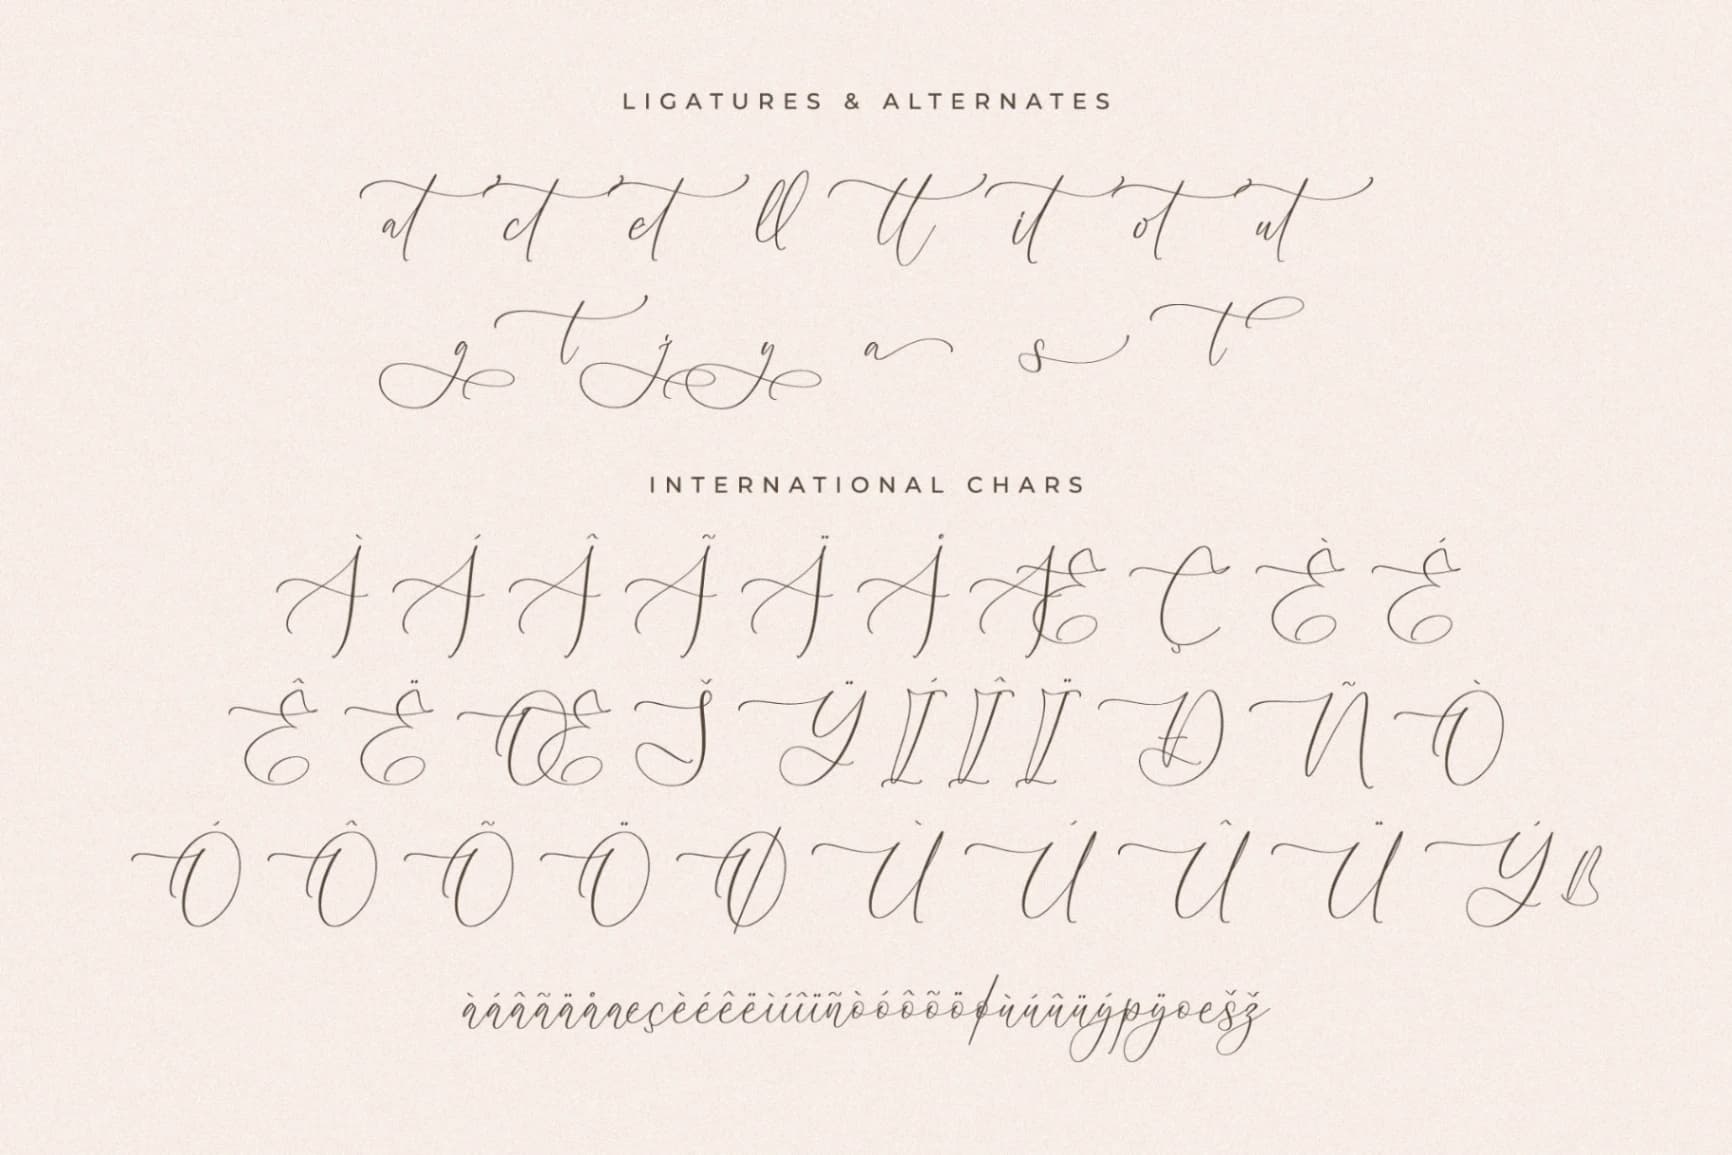 LIGATURES & ALTERNATES
at ct et ll tt it ot ut
g t j y a s t
INTERNATIONAL CHARS
À Á Â Ã Ä Å Æ Ç È É
Ê Ë Œ Š Ÿ Í Î Ï Ð Ñ Ò
Ó Ô Õ Ö Ø Ù Ú Û Ü Ý ß
àáâãäåæçèéêëìíîïñòóôõöøùúûüýþÿœšž